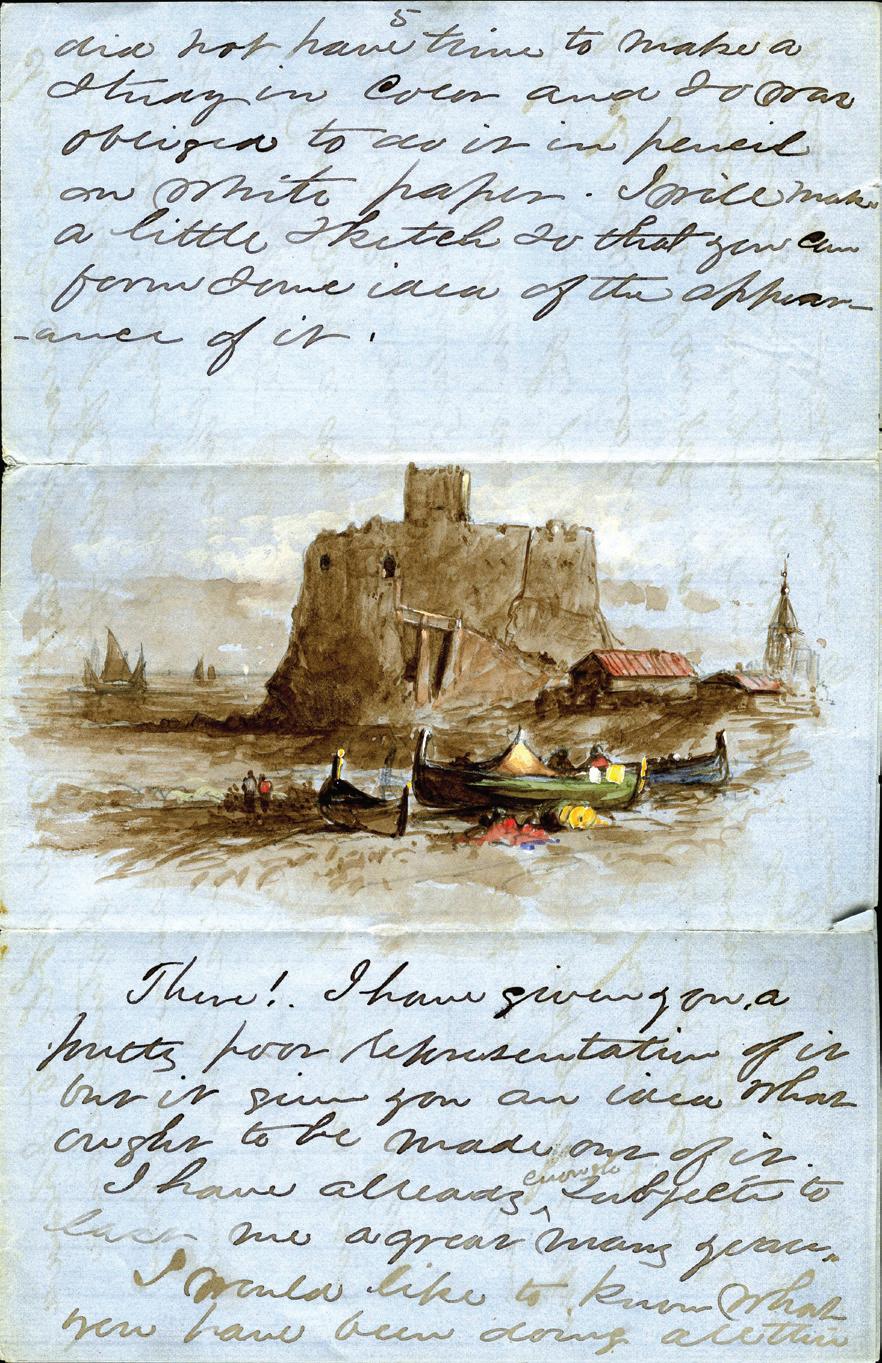 5
did not have time to make a
Study in Color and so was
obliged to do it in pencil
on white paper. I will make
a little sketch so that you can
form some idea of the appear-
-ance of it.
There! I have given you a
pretty poor representation of it
but it gives you an idea what
ought to be made out of it.
I have already enough subjects to
last me a great many years.
I would like to know what
you have been doing all this